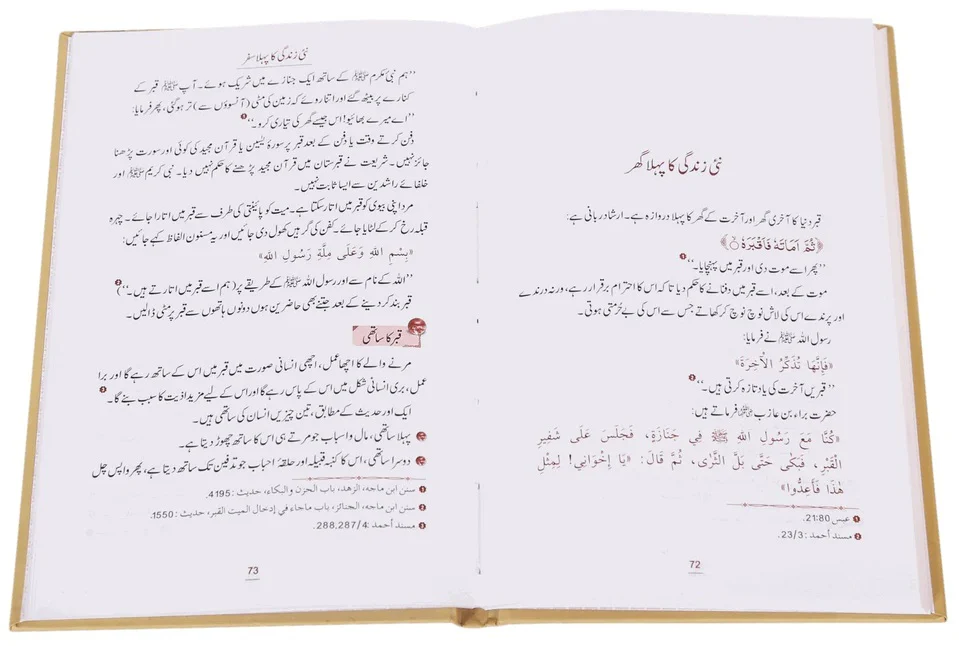 نئی زندگی کا پہلا گھر
قبر دنیا کا آخری گھر اور آخرت کے گھر کا پہلا دروازہ ہے۔ ارشاد ربانی ہے:
﴿ثُمَّ اَمَاتَهٗ فَاَقْبَرَهٗ ۙ﴾
’’پھر اسے موت دی اور قبر میں پہنچایا۔‘‘ ❶
موت کے بعد، اسے قبر میں دفنانے کا حکم دیا تاکہ اس کا احترام برقرار رہے، ورنہ درندے
اور پرندے اس کی لاش نوچ نوچ کر کھاتے جس سے اس کی بے حُرمتی ہوتی۔
رسول اللہ ﷺ نے فرمایا:
«فَإِنَّهَا تُذَكِّرُ الْآخِرَةَ»
’’قبریں آخرت کی یاد تازہ کرتی ہیں۔‘‘ ❷
حضرت براء بن عازب فرماتے ہیں:
«كُنَّا مَعَ رَسُولِ اللهِ ﷺ فِي جَنَازَةٍ، فَجَلَسَ عَلَى شَفِيرِ
الْقَبْرِ، فَبَكَى حَتَّى بَلَّ الثَّرٰى، ثُمَّ قَالَ: «يَا إِخْوَانِي! لِمِثْلِ
هٰذَا فَأَعِدُّوا»
❶ عبس 21:80.
❷ مسند أحمد: 23/3.
72
نئی زندگی کا پہلا سفر
’’ہم نبی مکرم ﷺ کے ساتھ ایک جنازے میں شریک ہوئے۔ آپ ﷺ قبر کے
کنارے پر بیٹھ گئے اور اتنا روئے کہ زمین کی مٹی (آنسوؤں سے) تر ہو گئی، پھر فرمایا:
’’اے میرے بھائیو! اس جیسے گھر کی تیاری کرو۔‘‘ ❶
دفن کرتے وقت یا دفن کے بعد قبر پر سورۂ یٰسین یا قرآن مجید کی کوئی اور سورت پڑھنا
جائز نہیں۔ شریعت نے قبرستان میں قرآن مجید پڑھنے کا حکم نہیں دیا۔ نبی کریم ﷺ اور
خلفائے راشدین سے ایسا ثابت نہیں۔
مرد اپنی بیوی کو قبر میں اتار سکتا ہے۔ میت کو پائینتی کی طرف سے قبر میں اتارا جائے۔ چہرہ
قبلہ رخ کر کے لٹایا جائے۔ کفن کی گرہیں کھول دی جائیں اور یہ مسنون الفاظ کہے جائیں:
«بِسْمِ اللهِ وَعَلَى مِلَّةِ رَسُولِ اللهِ»
’’اللہ کے نام سے اور رسول اللہ ﷺ کے طریقے پر (ہم اسے قبر میں اتارتے ہیں۔‘‘) ❷
قبر بند کر دینے کے بعد جتنے بھی حاضرین ہوں دونوں ہاتھوں سے قبر پر مٹی ڈالیں۔
قبر کا ساتھی
مرنے والے کا اچھا عمل، اچھی انسانی صورت میں قبر میں اس کے ساتھ رہے گا اور برا
عمل، بری انسانی شکل میں اس کے پاس رہے گا اور اس کے لیے مزید اذیت کا سبب بنے گا۔ ❸
ایک اور حدیث کے مطابق، تین چیزیں انسان کی ساتھی ہیں۔
پہلا ساتھی، مال و اسباب جو مرتے ہی اس کا ساتھ چھوڑ دیتا ہے۔
دوسرا ساتھی، اس کا کنبہ قبیلہ اور حلقۂ احباب جو تدفین تک ساتھ دیتا ہے، پھر واپس چل
❶ سنن ابن ماجه، الزهد، باب الحزن والبكاء، حديث: 4195.
❷ سنن ابن ماجه، الجنائز، باب ماجاء في إدخال الميت القبر، حديث: 1550.
❸ مسند أحمد: 288,287/4.
73